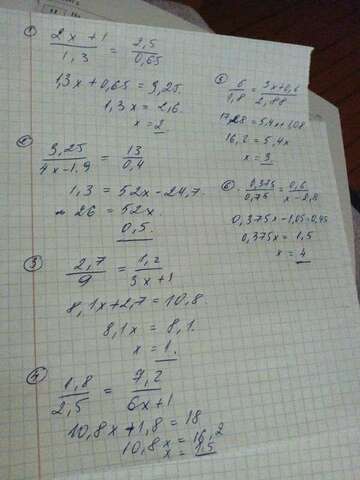 ①
2x+1 / 1,3 = 2,5 / 0,65
1,3x+0,65 = 3,25.
1,3x = 2,6.
x = 2.
②
3,25 / 4x-1,9 = 13 / 0,4
1,3 = 52x-24,7.
26 = 52x.
0,5.
③
2,7 / 9 = 1,2 / 3x+1
8,1x+2,7 = 10,8.
8,1x = 8,1.
x = 1.
④
1,8 / 2,5 = 7,2 / 6x+1
10,8x+1,8 = 18
10,8x = 16,2
x = 1,5
⑤
6 / 1,8 = 3x+0,6 / 2,88
17,28 = 5,4x+1,08
16,2 = 5,4x
x = 3
⑥
0,375 / 0,75 = 0,6 / x-2,8
0,375x-1,05=0,45
0,375x = 1,5
x = 4